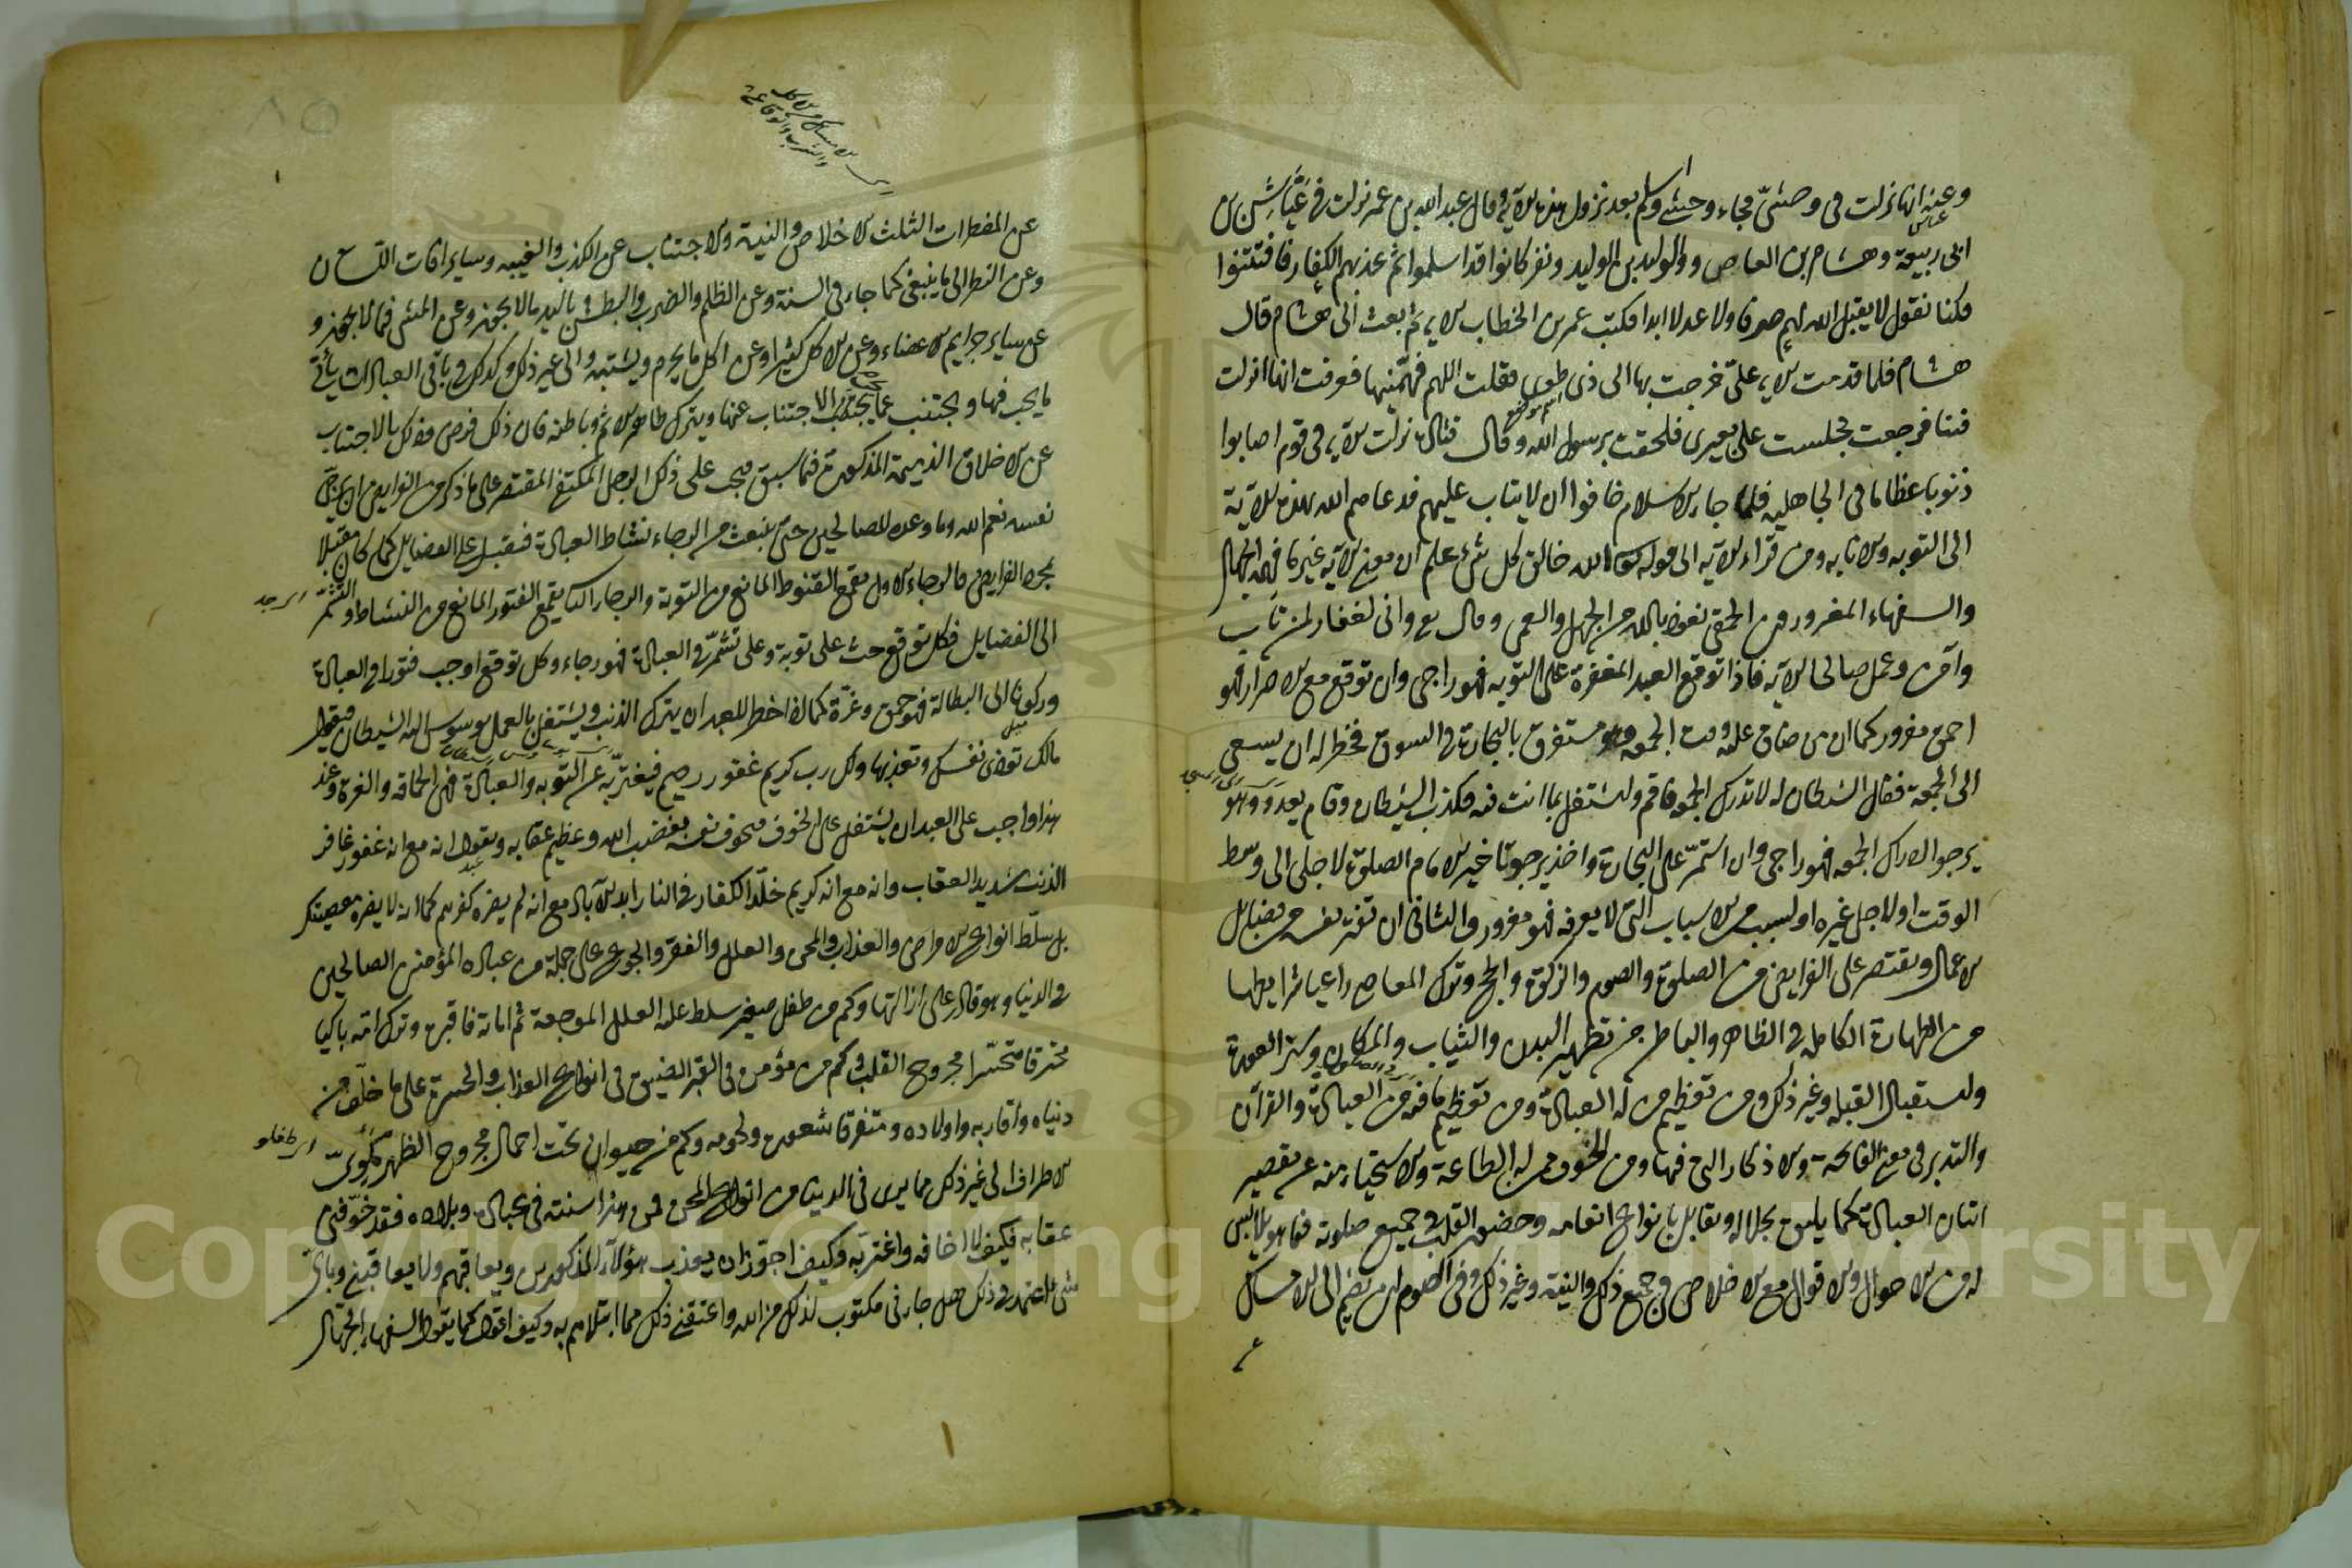 وعنه انها نزلت فى وحشىّ فجاء وحشى واسلم بعد نزول هذه الآية وقال عبد الله بن عمر نزلت فى عيّاش بن
ابى ربيعة وهشام بن العاص والوليد بن الوليد ونفر كانوا قد اسلموا ثم عذبهم الكفار فافتتنوا
فكنا نقول لا يقبل الله لهم صرفا ولا عدلا ابدا فكتب عمر بن الخطاب الآية ثم بعث الى هشام قال
هشام فلما قدمت الآية علىّ خرجت بها الى ذى طوى فقلت اللهم فهّمنيها فعرفت انها انزلت
فينا فرجعت فجلست على بعيرى فلحقت برسول الله وقال قتادة نزلت الآية فى قوم اصابوا
ذنوبا عظاما فى الجاهليه فلما جاء الاسلام خافوا ان لا يتاب عليهم فدعاهم الله بهذه الآية
الى التوبه والانابه ومن قرأ الآية الى قوله الله خالق كل شىء علم ان معنى الآية غير ما فهمه الجهال
والسفهاء المغرورون الحمقى نعوذ بالله من الجهل والعمى وقال تع وانى لغفار لمن تاب
وآمن وعمل صالحا الآية فاذا توقع العبد المغفرة على التوبه فهو راجى وان توقع مع الاصرار فهو
احمق مغرور كما ان من ضاق عليه وقت الجمعه وهو مستغرق بالتجارة فى السوق فخطر له ان يسعى
الى الجمعة فقال الشيطان له لا تدرك الجمعه فاقم واشتغل بما انت فيه فكذب الشيطان وقام يعدو وهو
يرجو ادراك الجمعه فهو راجى وان استمرّ على التجارة واخذ يرجو تاخير الامام الصلوة لاجله الى وسط
الوقت او لاجل غيره او لسبب من الاسباب التى لا يعرفه فهو مغرور والثانى ان تفتر نفسه عن فضايل
الاعمال ويقتصر على الفرايض من الصلوة والصوم والزكوة والحج وترك المعاصى راعيا شرايطها
من الطهارة الكامله فى الظاهر والباطن من تطهير البدن والثياب والمكان وستر العورة
واستقبال القبله وغير ذلك ومن تعظيم من له العبادة ومن تعظيم ما فيه من العبادة والقرآن
والتدبر فى معنى الفاتحة والاذكار التى فيها ومن الخوف ممن له الطاعة والاستحياء منه عن تقصير
اتيان العبادة كما يليق بجلاله ويقابل بانواع انعامه وحضور القلب فى جميع صلوته فيما هو يلابس
له من الاحوال والاقوال مع الاخلاص فى جميع ذلك والنية وغير ذلك وفى الصوم ان يضم الى الامساك
عن المفطرات الثلث الاخلاص والنية والاجتناب عن الكذب والغيبه وساير آفات اللسان
وعن النظر الى ما ينبغى كما جاء فى السنة وعن الظلم والضرب والبطش باليد بما لا يجوز وعن المشى فيما لا يجوز و
عن ساير جرايم الاعضاء وعن الاكل كثيرا وعن اكل ما يحرم ويشتبه والى غير ذلك وكذلك فى باقى العبادات يأتى
ما يجب فيها ويجتنب عما يجب الاجتناب عنها ويترك ظاهر الاثم وباطنه فان ذلك فرض وذلك بالاجتناب
عن الاخلاق الذميمة المذكورة فيما سبق فيجب على ذلك الرجل المكتفى المقتصر على ما ذكر من الفرايض ان يرجّى
نفسه نعم الله وما وعده للصالحين حتى ينبعث من الرجاء نشاط العبادة فيقبل على الفضايل كما كان مقبلا
بمجرد الفرايض فالرجاء الاول يقمع القنوط المانع من التوبة والرجاء الثانى يقمع الفتور المانع من النشاط والتشمّر
الى الفضايل فكل توقع حث على توبة وعلى تشمّر فى العبادة فهو رجاء وكل توقع اوجب فتورا فى العبادة
وركونا الى البطالة فهو حمق وغرّة كما اذا خطر للعبد ان يترك الذنب ويشتغل بالعمل يوسوس اليه الشيطان فيقول
مالك توذى نفسك وتعذبها ولك رب كريم غفور رحيم فيغترّ به عن التوبه والعبادة فهى الحماقه والغرة وعند
هذا واجب على العبدان يشتغل على الخوف فيخوف نفسه بغضب الله وعظيم عقابه ويقول انه مع انه غفور غافر
الذنب شديد العقاب وانه مع انه كريم خلّد الكفار فى النار ابد الآباد مع انه لم يضره كفرهم كما انه لا يضره معصيتك
بل سلّط انواع الامراض والعذاب والمحن والعلل والفقر والجوع على جملة من عباده المؤمنين الصالحين
فى الدنيا وهو قادر على ازالتها وكم من طفل صغير سلط عليه العلل الموجعة ثم اماته فاقبره وترك امّه باكيا
محترقا متحسّرا مجروح القلب وكم من مؤمن فى القبر الضيق فى انواع العذاب والحسرة على ما خلّف من
دنياه واقاربه واولاده ومتفرقا شعوره ولحومه وكم من حيوان تحت احمال مجروح الظهر مكوىّ
الاطراف الى غير ذلك مما يرى فى الدنيا من انواع المحن فمن هذا سنته فى عباده وبلاده فقد خوّفنى
عقابه فكيف لا اخافه واغترّ به وكيف اجوّز ان يعذب هؤلاء المذكورين ويعاقبهم ولا يعاقبنى وباىّ
شىء اعتمد فى ذلك هل جاءنى مكتوب لذلك من الله واعتقنى ذلك مما ابتلاهم به وكيف اقول كما يقول السفهاء الجهّال
Copyright © King University